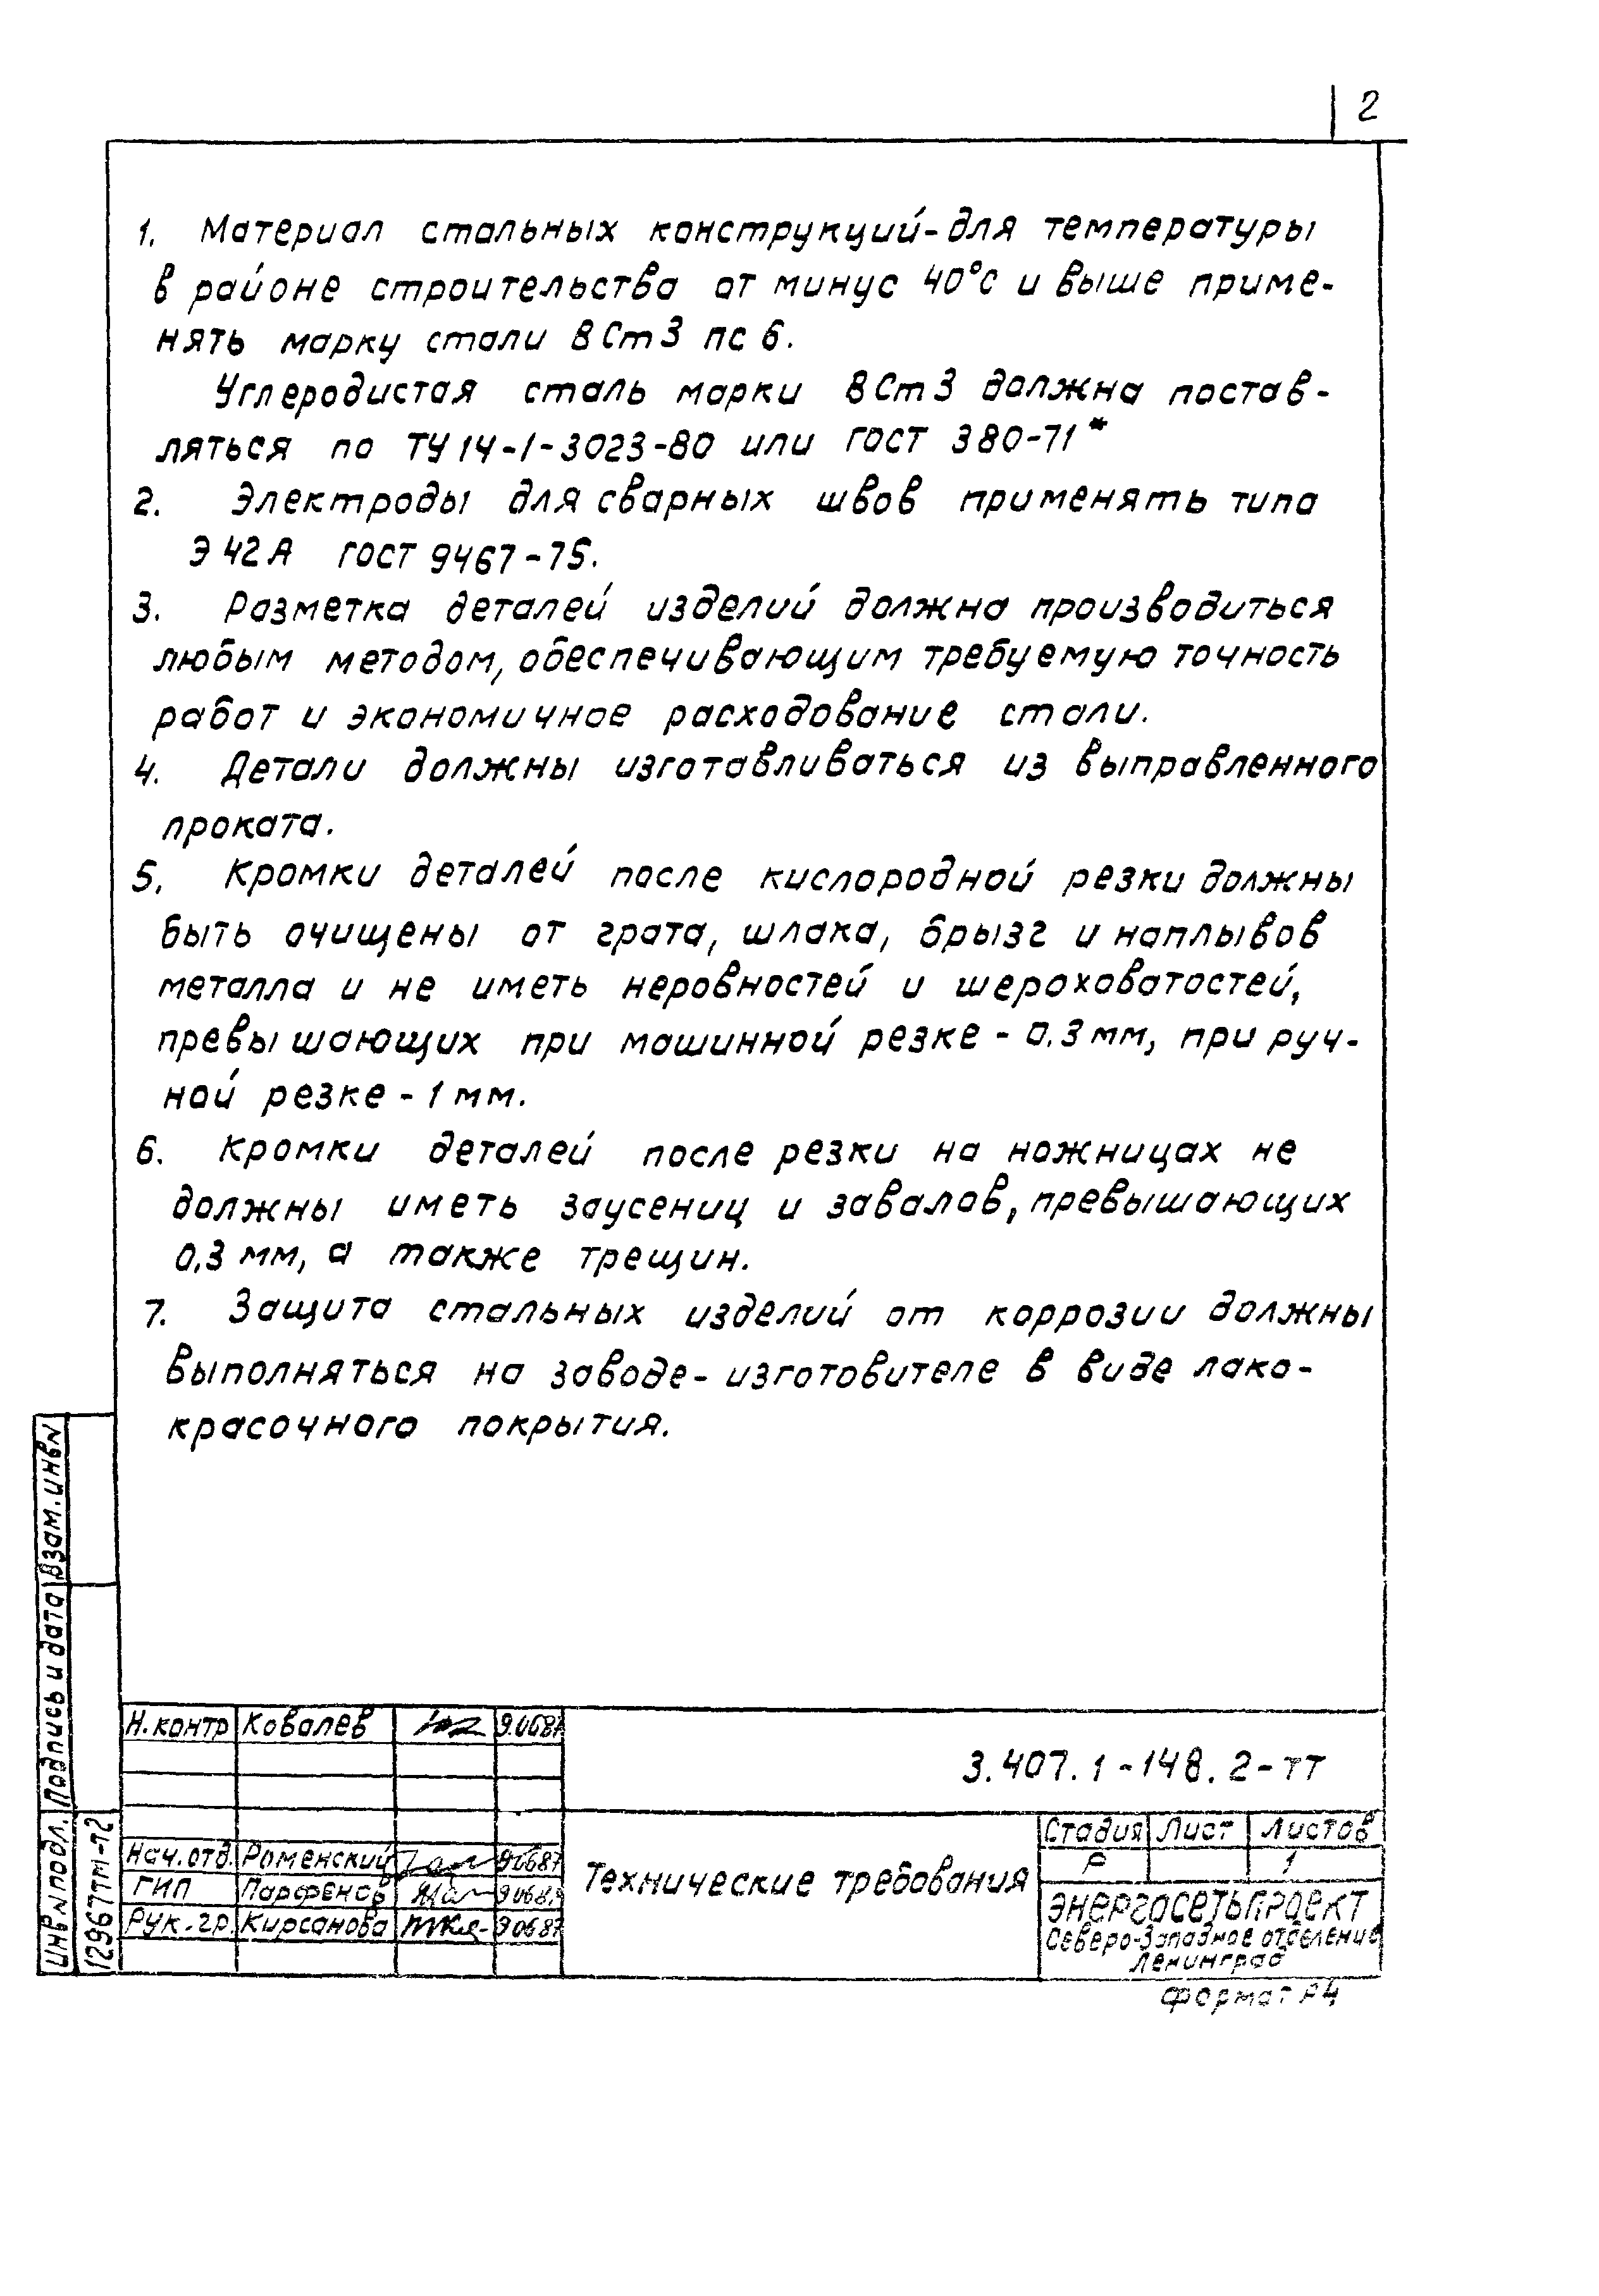 2
1. Материал стальных конструкций-для температуры
в районе строительства от минус 40°С и выше приме-
нять марку стали ВСт3 пс 6.
Углеродистая сталь марки ВСт3 должна постав-
ляться по ТУ 14-1-3023-80 или ГОСТ 380-71*
2. Электроды для сварных швов применять типа
Э 42А ГОСТ 9467-75.
3. Разметка деталей изделий должна производиться
любым методом, обеспечивающим требуемую точность
работ и экономичное расходование стали.
4. Детали должны изготавливаться из выправленного
проката.
5. Кромки деталей после кислородной резки должны
быть очищены от грата, шлака, брызг и наплывов
металла и не иметь неровностей и шероховатостей,
превышающих при машинной резке - 0.3 мм, при руч-
ной резке - 1 мм.
6. Кромки деталей после резки на ножницах не
должны иметь заусениц и завалов, превышающих
0,3 мм, а также трещин.
7. Защита стальных изделий от коррозии должны
выполняться на заводе-изготовителе в виде лако-
красочного покрытия.
Взам. инв N
Подпись и дата
Инв N подл.
12967тм-т2
Н. контр Ковалев 9.0687
3.407.1-148.2-ТТ
Нач. отд. Роменский 90687
ГИП Парфенов 90687
Рук. гр. Кирсанова 90687
Технические требования
Стадия Лист Листов
Р 1
ЭНЕРГОСЕТЬПРОЕКТ
Северо-Западное отделение
Ленинград
Формат А4